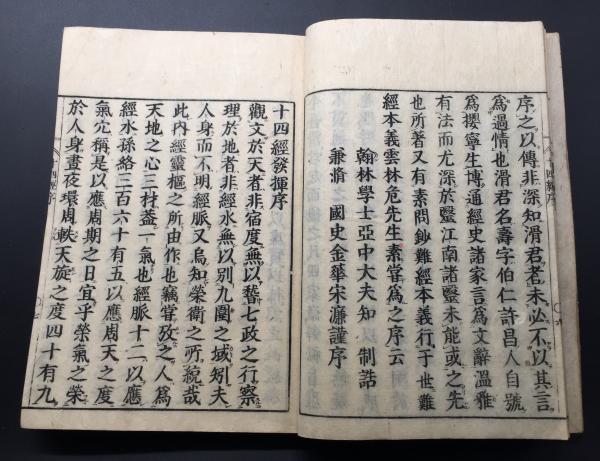 序之以傳非深知滑君者未必不以其言
爲過情也滑君名壽字伯仁許昌人自號
爲攖寧生博通經史諸家言爲文辭溫雅
有法而尤深於醫江南諸醫未能或之先
也所著又有素問鈔難經本義行于世難
經本義雲林危先生素嘗爲之序云
翰林學士亞中大夫知 制誥
兼脩 國史金華宋濂謹序
十四經發揮序
觀文於天者非宿度無以稽七政之行察
理於地者非經水無以別九圍之域矧夫
人身而不明經脈又烏知榮衛之所統哉
此內經靈樞之所由作也竊嘗攷之人爲
天地之心三材蓋一氣也經脈十二以應
經水孫絡三百六十有五以應周天之度
氣穴稱是以應周期之日宜乎榮氣之榮
於人身晝夜環周軼天旋之度四十有九
十四經序